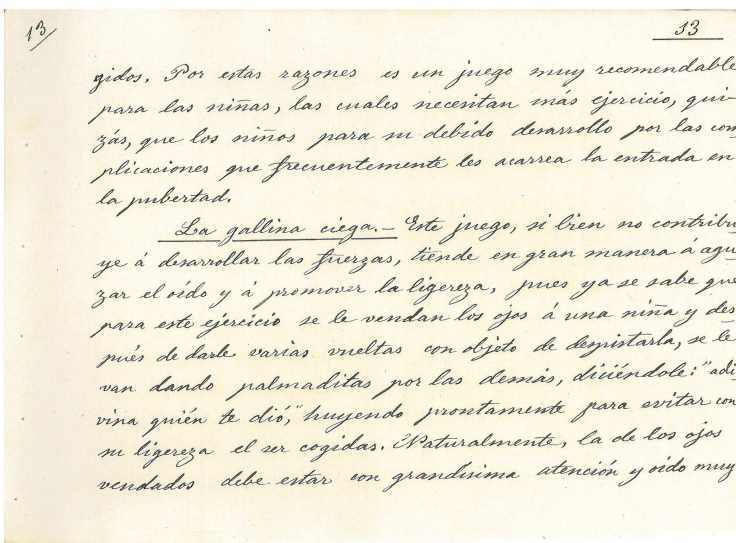 13/
13
gidos. Por estas razones es un juego muy recomendable
para las niñas, las cuales necesitan más ejercicio, qui-
zás, que los niños para su debido desarrollo por las com-
plicaciones que frecuentemente les acarrea la entrada en
la pubertad.
La gallina ciega.- Este juego, si bien no contribu-
ye á desarrollar las fuerzas, tiende en gran manera á agu-
zar el oído y á promover la ligereza, pues ya se sabe que
para este ejercicio se le vendan los ojos á una niña y des-
pués de darle varias vueltas con objeto de despistarla, se le
van dando palmaditas por las demás, diciéndole: "adi-
vina quién te dió," huyendo prontamente para evitar con
su ligereza el ser cogidas. Naturalmente, la de los ojos
vendados debe estar con grandísima atención y oído muy